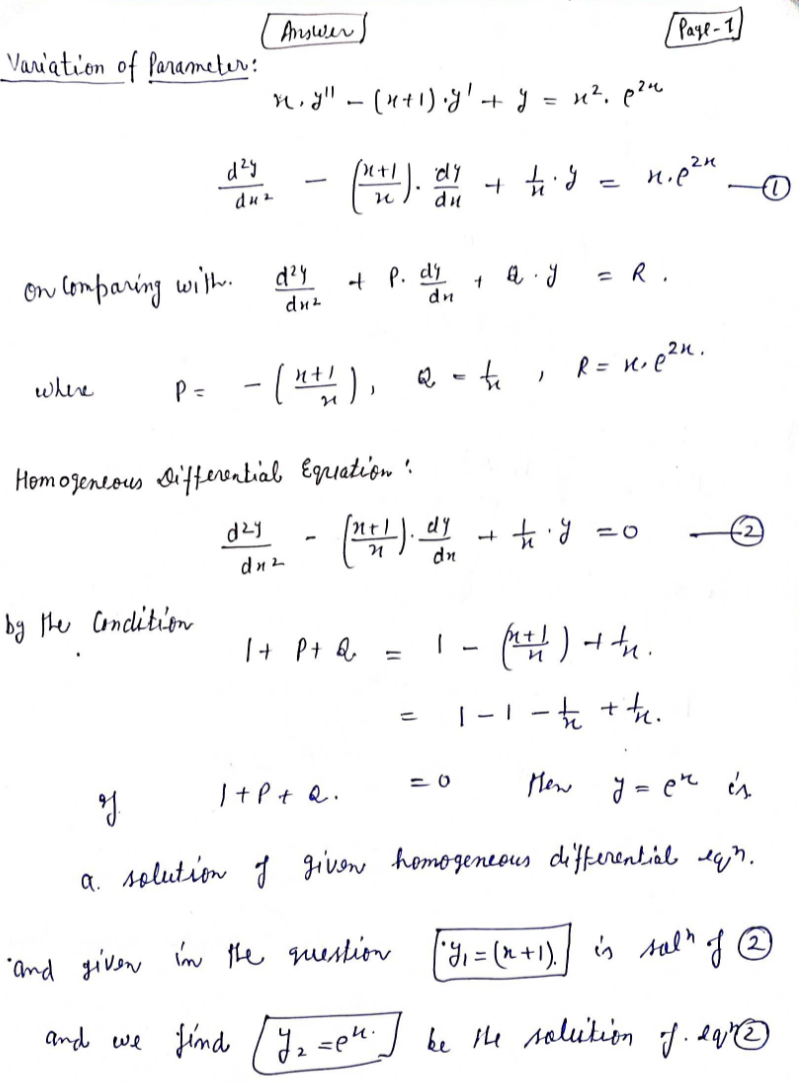 Answer
Page-1
Variation of Parameter:
x.y'' - (x+1).y' + y = x². e^{2x}
d²y/dx² - ((x+1)/x). dy/dx + 1/x . y = x.e^{2x} —①
on Comparing with. d²y/dx² + P. dy/dx + Q . y = R .
where P = - ((x+1)/x), Q = 1/x , R = x.e^{2x}.
Homogeneous Differential Equation:
d²y/dx² - ((x+1)/x). dy/dx + 1/x . y = 0 —②
by the Condition
1+ P+ Q = 1 - ((x+1)/x) + 1/x.
= 1-1 - 1/x + 1/x.
if 1+P+Q. = 0 then y = e^x is
a solution of given homogeneous differential eqⁿ.
and given in the question y₁=(x+1). is solⁿ of ②
and we find y₂ =e^x. be the solution of. eqⁿ②